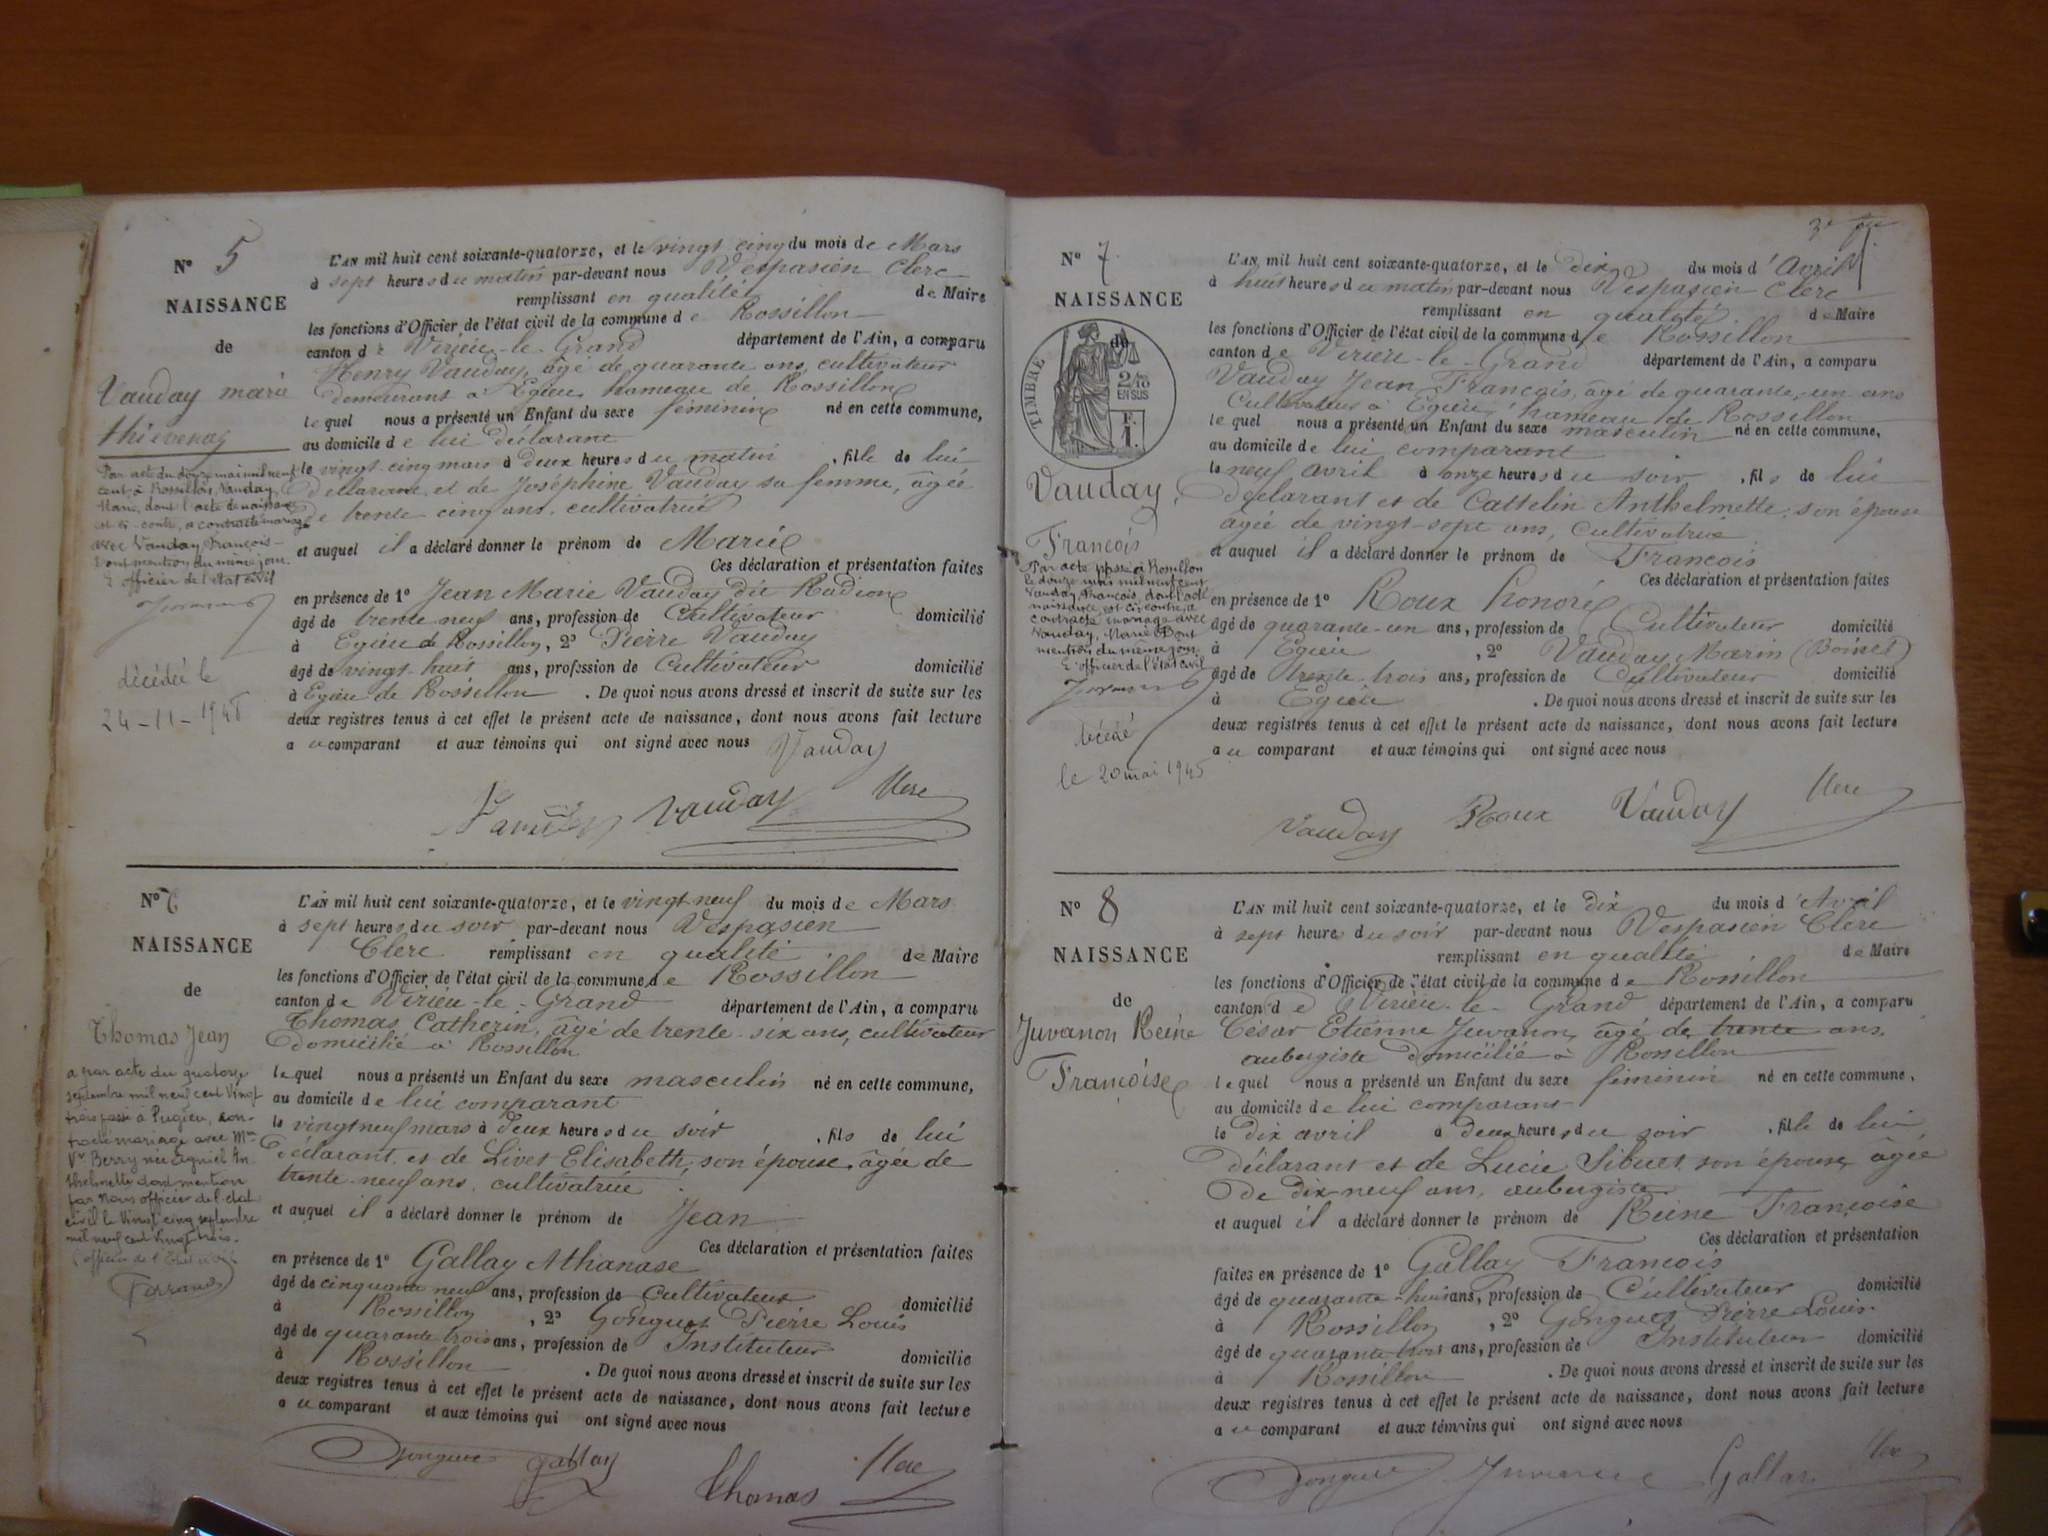 N° 5
NAISSANCE
de
Vauday marie
thievenaz
Par acte du douze mai mil neuf
cent, à Rossillon, Vauday
Marie, dont l'acte de naissance
est ci-contre, a contracté mariage
avec Vauday François -
Dont mention du même jour.
L'officier de l'état civil
décédée le
24-11-1948
L'AN mil huit cent soixante-quatorze, et le vingt cinq du mois de Mars
à sept heures du matin par-devant nous Vespasien Clerc
remplissant en qualité de Maire
les fonctions d'Officier de l'état civil de la commune de Rossillon
canton de Virieu-le-Grand département de l'Ain, a comparu
Henry Vauday, âgé de quarante ans, cultivateur
demeurant à Egieu hameau de Rossillon
lequel nous a présenté un Enfant du sexe féminin né en cette commune,
au domicile de lui déclarant
le vingt cinq mars à deux heures du matin, fille de lui
déclarant et de Joséphine Vauday sa femme, âgée
de trente cinq ans, cultivatrice
et auquel il a déclaré donner le prénom de Marie
Ces déclaration et présentation faites
en présence de 1° Jean Marie Vauday dit Radion
âgé de trente neuf ans, profession de Cultivateur domicilié
à Egieu de Rossillon, 2° Pierre Vauday
âgé de vingt-huit ans, profession de Cultivateur domicilié
à Egieu de Rossillon. De quoi nous avons dressé et inscrit de suite sur les
deux registres tenus à cet effet le présent acte de naissance, dont nous avons fait lecture
au comparant et aux témoins qui ont signé avec nous Vauday
Vauday Clerc
N° 6
NAISSANCE
de
Thomas Jean
a par acte du quatorze
septembre mil neuf cent vingt
trois passé à Pugieu, con-
tracté mariage avec Mme
Vve Berry née
thelmette dont mention
par nous officier de l'état
civil le vingt cinq septembre
mil neuf cent vingt trois.
L'officier de l'Etat civil
Ferrand
L'AN mil huit cent soixante-quatorze, et le vingt neuf du mois de Mars
à sept heures du soir par-devant nous Vespasien
Clerc remplissant en qualité de Maire
les fonctions d'Officier de l'état civil de la commune de Rossillon
canton de Virieu-le-Grand département de l'Ain, a comparu
Thomas Catherin, âgé de trente-six ans, cultivateur
domicilié à Rossillon
lequel nous a présenté un Enfant du sexe masculin né en cette commune,
au domicile de lui comparant
le vingt neuf mars à deux heures du soir, fils de lui
déclarant et de Livet Elisabeth, son épouse, âgée de
trente-neuf ans, cultivatrice
et auquel il a déclaré donner le prénom de Jean
Ces déclaration et présentation faites
en présence de 1° Gallay Athanase
âgé de cinquante neuf ans, profession de Cultivateur domicilié
à Rossillon, 2° Gonguet Pierre Louis
âgé de quarante trois ans, profession de Instituteur domicilié
à Rossillon. De quoi nous avons dressé et inscrit de suite sur les
deux registres tenus à cet effet le présent acte de naissance, dont nous avons fait lecture
au comparant et aux témoins qui ont signé avec nous
Gallay Thomas Clerc
N° 7
NAISSANCE
de
TIMBRE
2/10
EN SUS
F.
1.
Vauday
François
Par acte passé à Rossillon
le douze mai mil neuf cent,
Vauday, François, dont l'acte
naissance est ci-contre, a
contracté mariage avec
Vauday, Marie. Dont
mention du même jour.
L'officier de l'état civil
décédé
le 20 mai 1945
L'AN mil huit cent soixante-quatorze, et le dix du mois d'Avril
à huit heures du matin par-devant nous Vespasien Clerc
remplissant en qualité de Maire
les fonctions d'Officier de l'état civil de la commune de Rossillon
canton de Virieu-le-Grand département de l'Ain, a comparu
Vauday Jean François, âgé de quarante-un ans
Cultivateur à Egieu, hameau de Rossillon
lequel nous a présenté un Enfant du sexe masculin né en cette commune,
au domicile de lui comparant
le neuf avril à onze heures du soir, fils de lui
déclarant et de Cattelin Anthelmette, son épouse
âgée de vingt-sept ans, Cultivatrice
et auquel il a déclaré donner le prénom de François
Ces déclaration et présentation faites
en présence de 1° Roux Honoré
âgé de quarante-un ans, profession de Cultivateur domicilié
à Egieu, 2° Vauday Marin
âgé de trente trois ans, profession de Cultivateur domicilié
à Egieu. De quoi nous avons dressé et inscrit de suite sur les
deux registres tenus à cet effet le présent acte de naissance, dont nous avons fait lecture
au comparant et aux témoins qui ont signé avec nous
Vauday Roux Vauday Clerc
N° 8
NAISSANCE
de
Juvanon Reine
Françoise
L'AN mil huit cent soixante-quatorze, et le dix du mois d'Avril
à sept heures du soir par-devant nous Vespasien Clerc
remplissant en qualité de Maire
les fonctions d'Officier de l'état civil de la commune de Rossillon
canton de Virieu-le-Grand département de l'Ain, a comparu
César Etienne Juvanon, âgé de trente ans,
aubergiste domicilié à Rossillon
lequel nous a présenté un Enfant du sexe féminin né en cette commune,
au domicile de lui comparant
le dix avril à deux heures du soir, fille de lui
déclarant et de Lucie Sibuet, son épouse, âgée
de dix-neuf ans, aubergiste
et auquel il a déclaré donner le prénom de Reine Françoise
Ces déclaration et présentation
faites en présence de 1° Gallay François
âgé de quarante-huit ans, profession de Cultivateur domicilié
à Rossillon, 2° Gonguet Pierre Louis
âgé de quarante-trois ans, profession de Instituteur domicilié
à Rossillon. De quoi nous avons dressé et inscrit de suite sur les
deux registres tenus à cet effet le présent acte de naissance, dont nous avons fait lecture
au comparant et aux témoins qui ont signé avec nous
Gallay Clerc